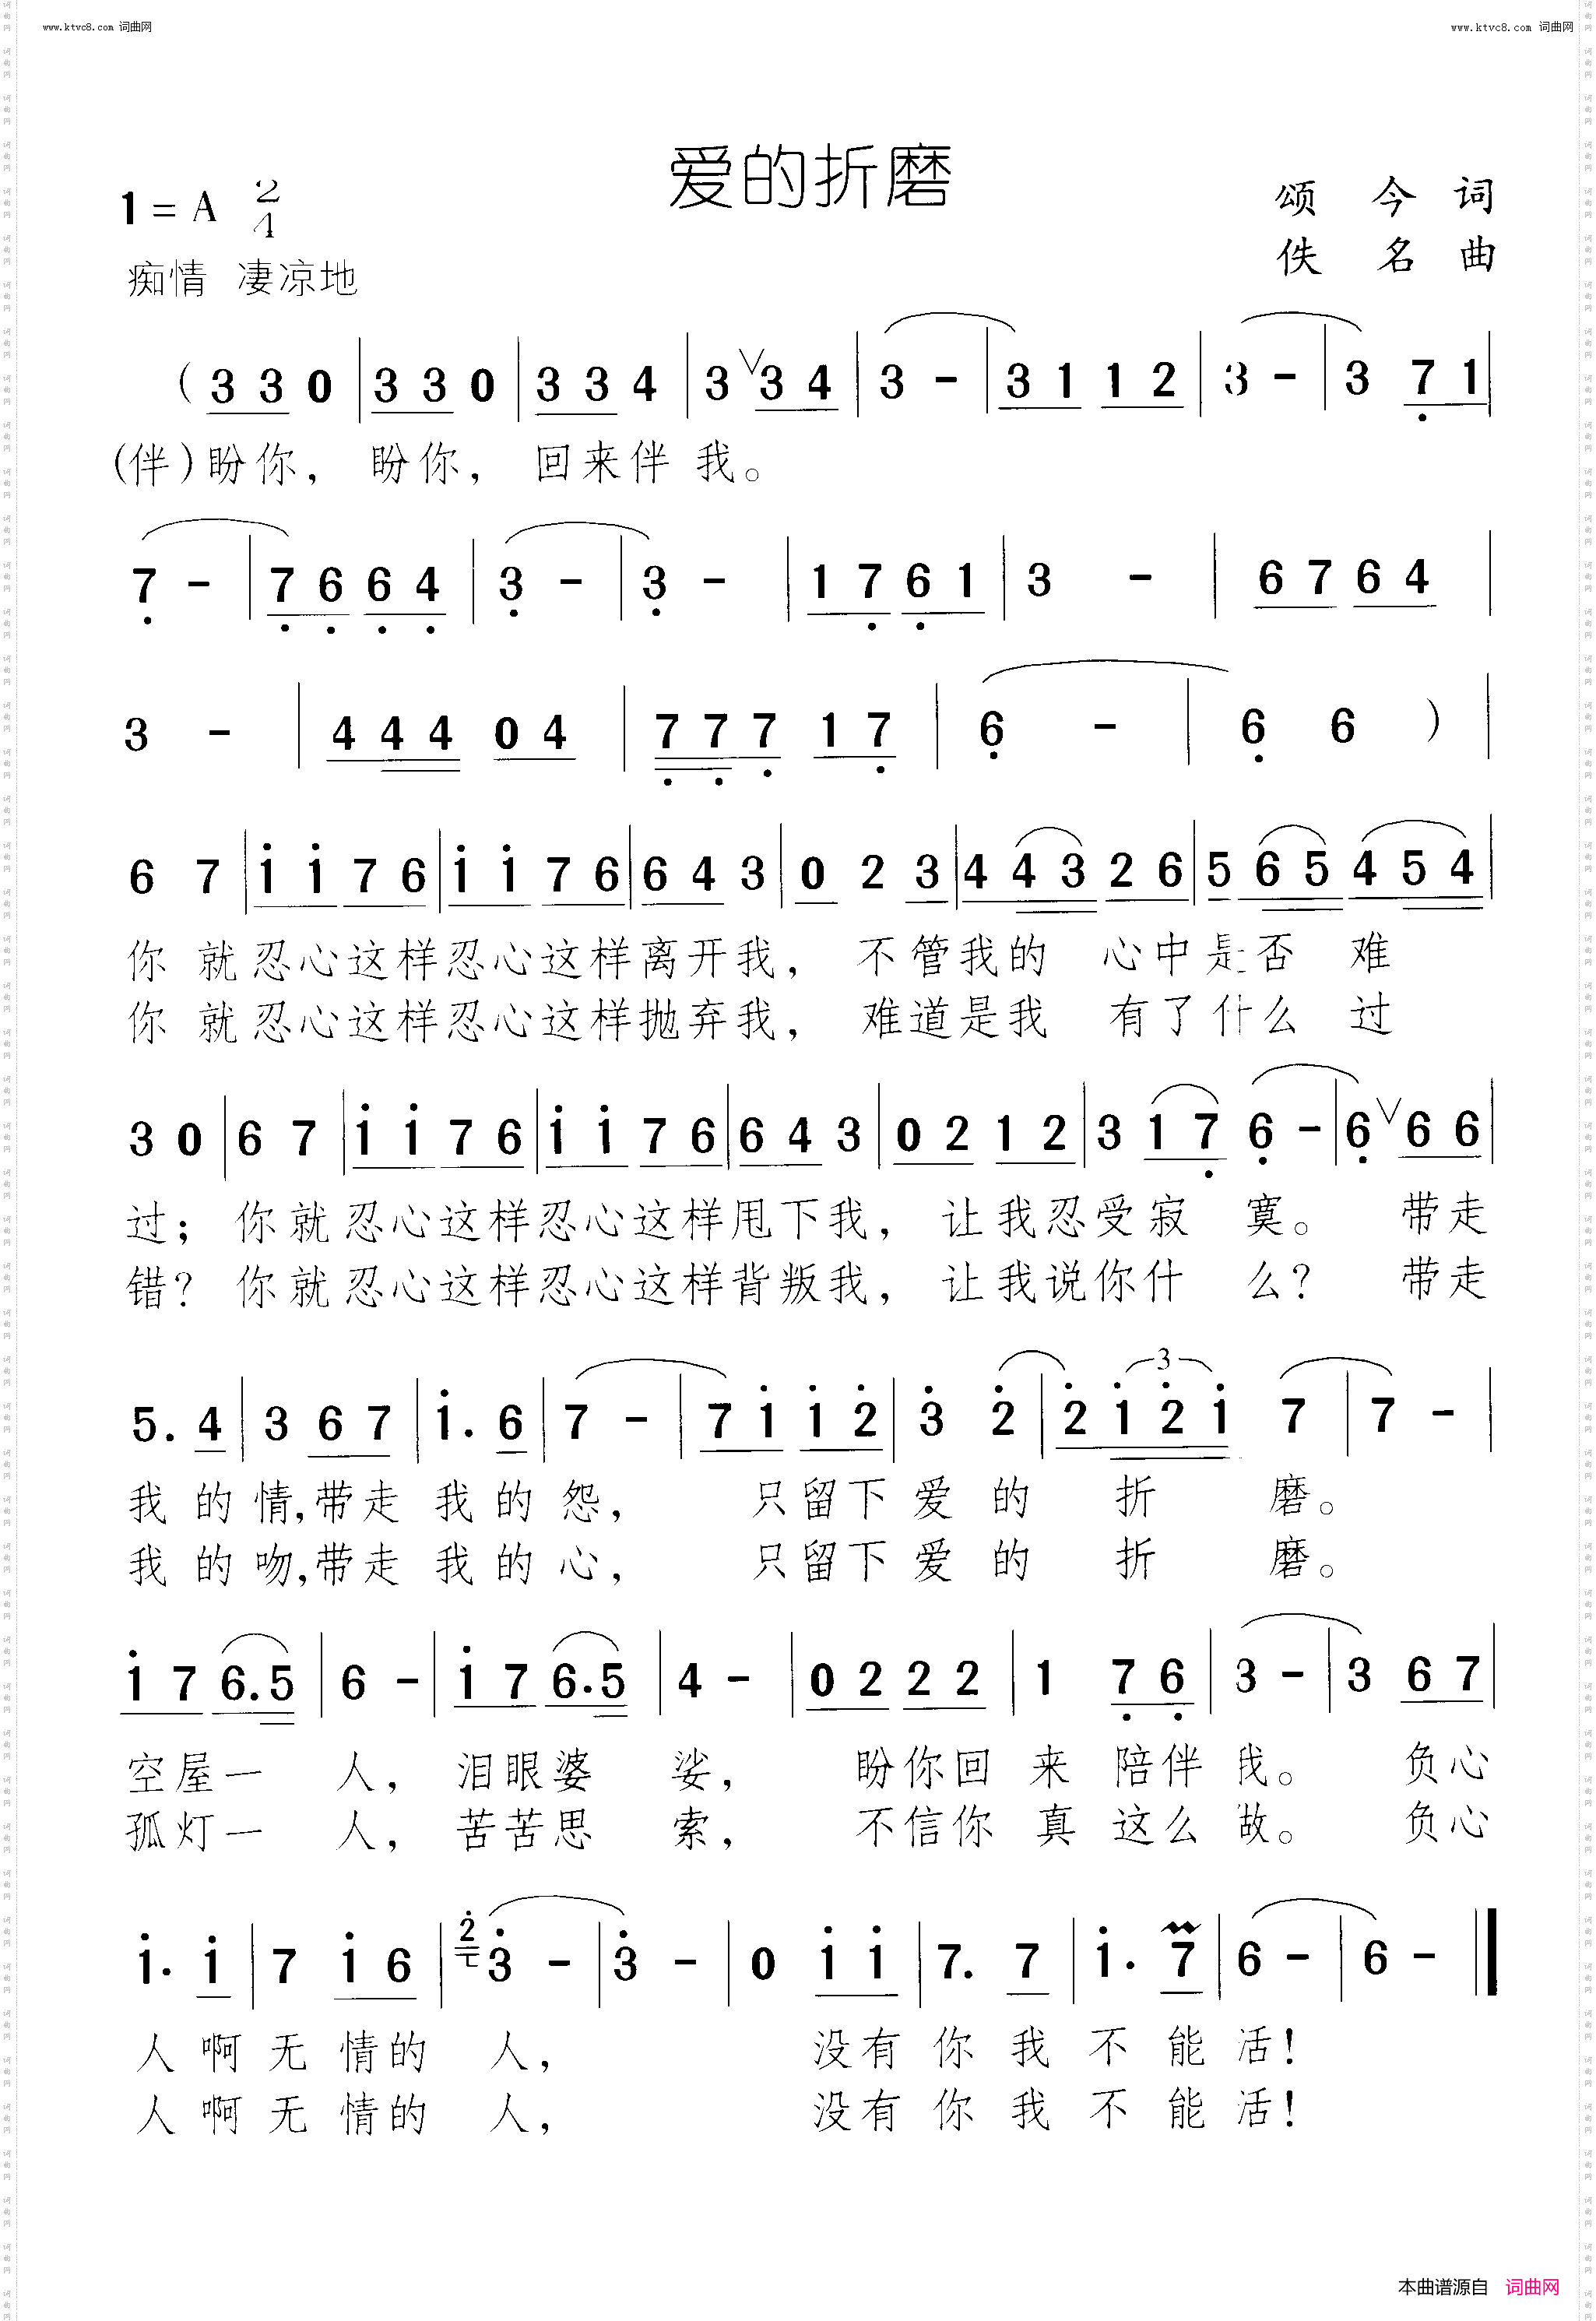 www.ktvc8.com 词曲网
www.ktvc8.com 词曲网
爱的折磨
1 = A 2/4
颂 今 词
佚 名 曲
痴情 凄凉地
( 3 3 0 | 3 3 0 | 3 3 4 | 3 ∨ 3 4 | 3 - | 3 1 1 2 | 3 - | 3 7 1 |
(伴)盼你, 盼你, 回来伴 我。
7 - | 7 6 6 4 | 3 - | 3 - | 1 7 6 1 | 3 - | 6 7 6 4 |
3 - | 4 4 4 0 4 | 7 7 7 1 7 | 6 - | 6 6 ) |
6 7 | i i 7 6 | i i 7 6 | 6 4 3 | 0 2 3 | 4 4 3 2 6 | 5 6 5 4 5 4 |
你 就忍心这样忍心这样离开我, 不管我的 心中是否 难
你 就忍心这样忍心这样抛弃我, 难道是我 有了什么 过
3 0 | 6 7 | i i 7 6 | i i 7 6 | 6 4 3 | 0 2 1 2 | 3 1 7 | 6 - | 6 ∨ 6 6 |
过; 你就忍心这样忍心这样甩下我, 让我忍受寂 寞。 带走
错? 你就忍心这样忍心这样背叛我, 让我说你什 么? 带走
5. 4 | 3 6 7 | i. 6 | 7 - | 7 i i 2 | 3 2 | 2 i 2 i 7 | 7 - |
3
我 的 情,带走 我 的 怨, 只留下 爱 的 折 磨。
我 的 吻,带走 我 的 心, 只留下 爱 的 折 磨。
i 7 6.5 | 6 - | i 7 6.5 | 4 - | 0 2 2 2 | 1 7 6 | 3 - | 3 6 7 |
空屋一 人, 泪眼婆 娑, 盼你回 来 陪伴 我。 负心
孤灯一 人, 苦苦思 索, 不信你 真 这么 做。 负心
i. i | 7 i 6 | 2 3 - | 3 - | 0 i i | 7. 7 | i. 7 | 6 - | 6 - ||
人 啊 无 情的 人, 没有 你 我 不 能 活!
人 啊 无 情的 人, 没有 你 我 不 能 活!
本曲谱源自 词曲网